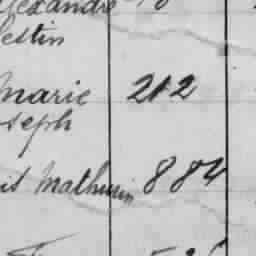 lexandre
estin
Marie 212
seph
is Mathurin 884